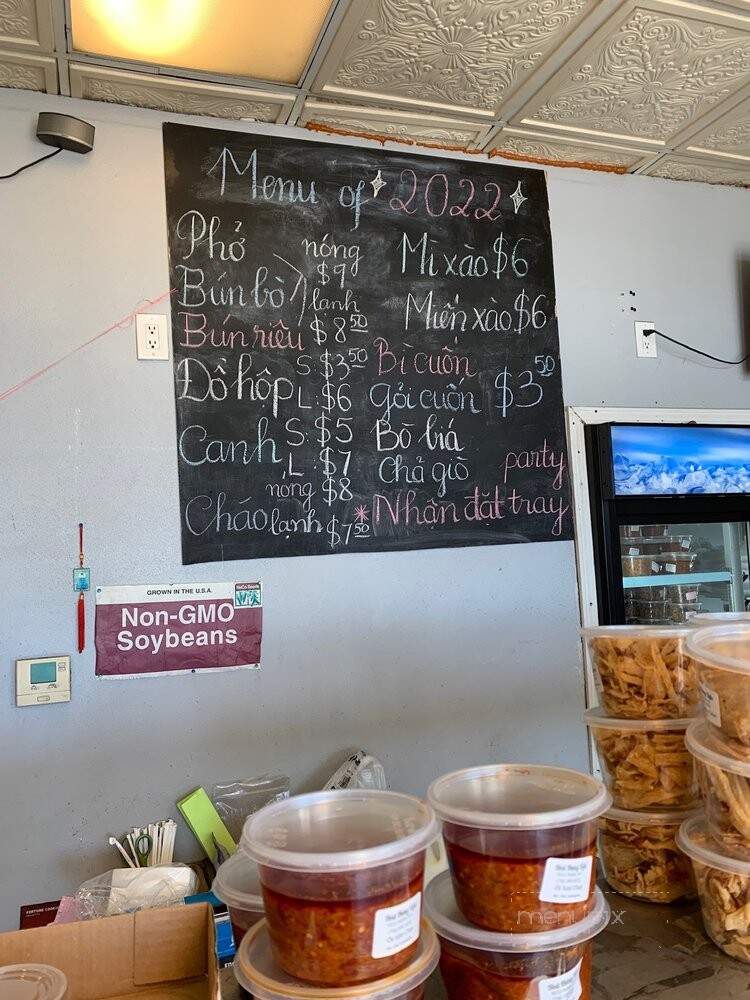 Menu of 2022
Phở
Bún bò
Bún riêu
nóng
$9
lạnh
$8.50
Đồ hộp
S: $3.50
L: $6
Canh
S: $5
L: $7
Cháo
nóng $8
lạnh $7.50
Mì xào $6
Miến xào $6
Bì cuốn
Gỏi cuốn
Bò bía
Chả giò
$3.50
*Nhận đặt party tray
GROWN IN THE U.S.A.
Non-GMO
Soybeans
menupix